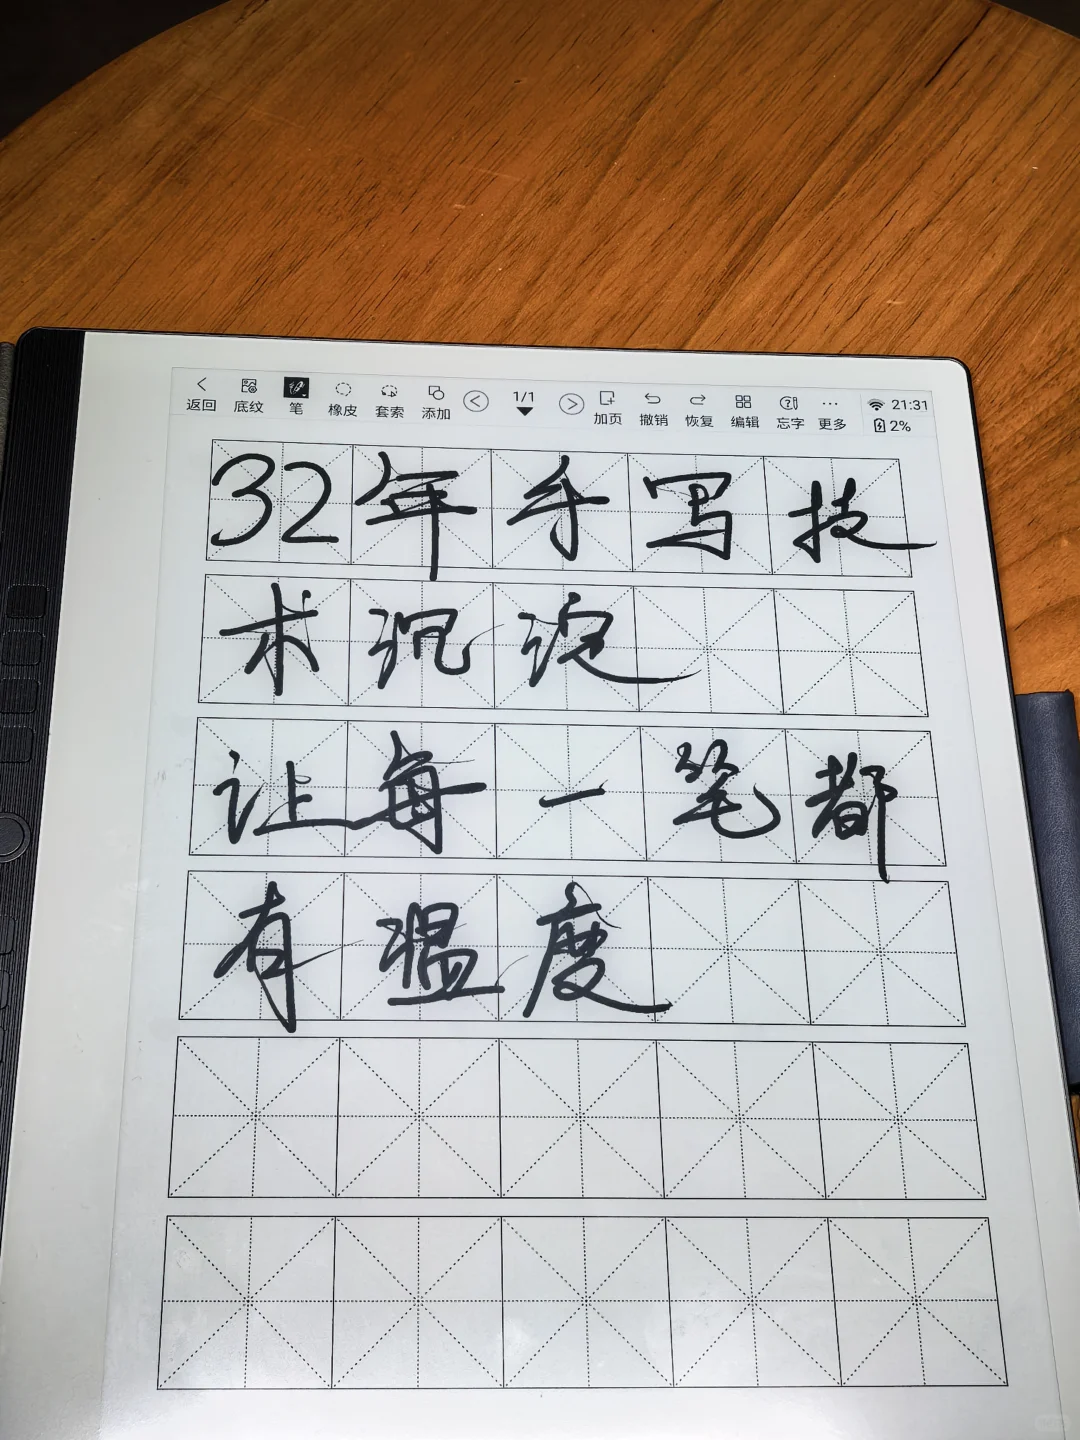 返回 底纹 笔 橡皮 套索 添加 1/1 加页 撤销 恢复 编辑 忘字 更多 21:31 2%
32年手写技
术沉淀
让每一笔都
有温度